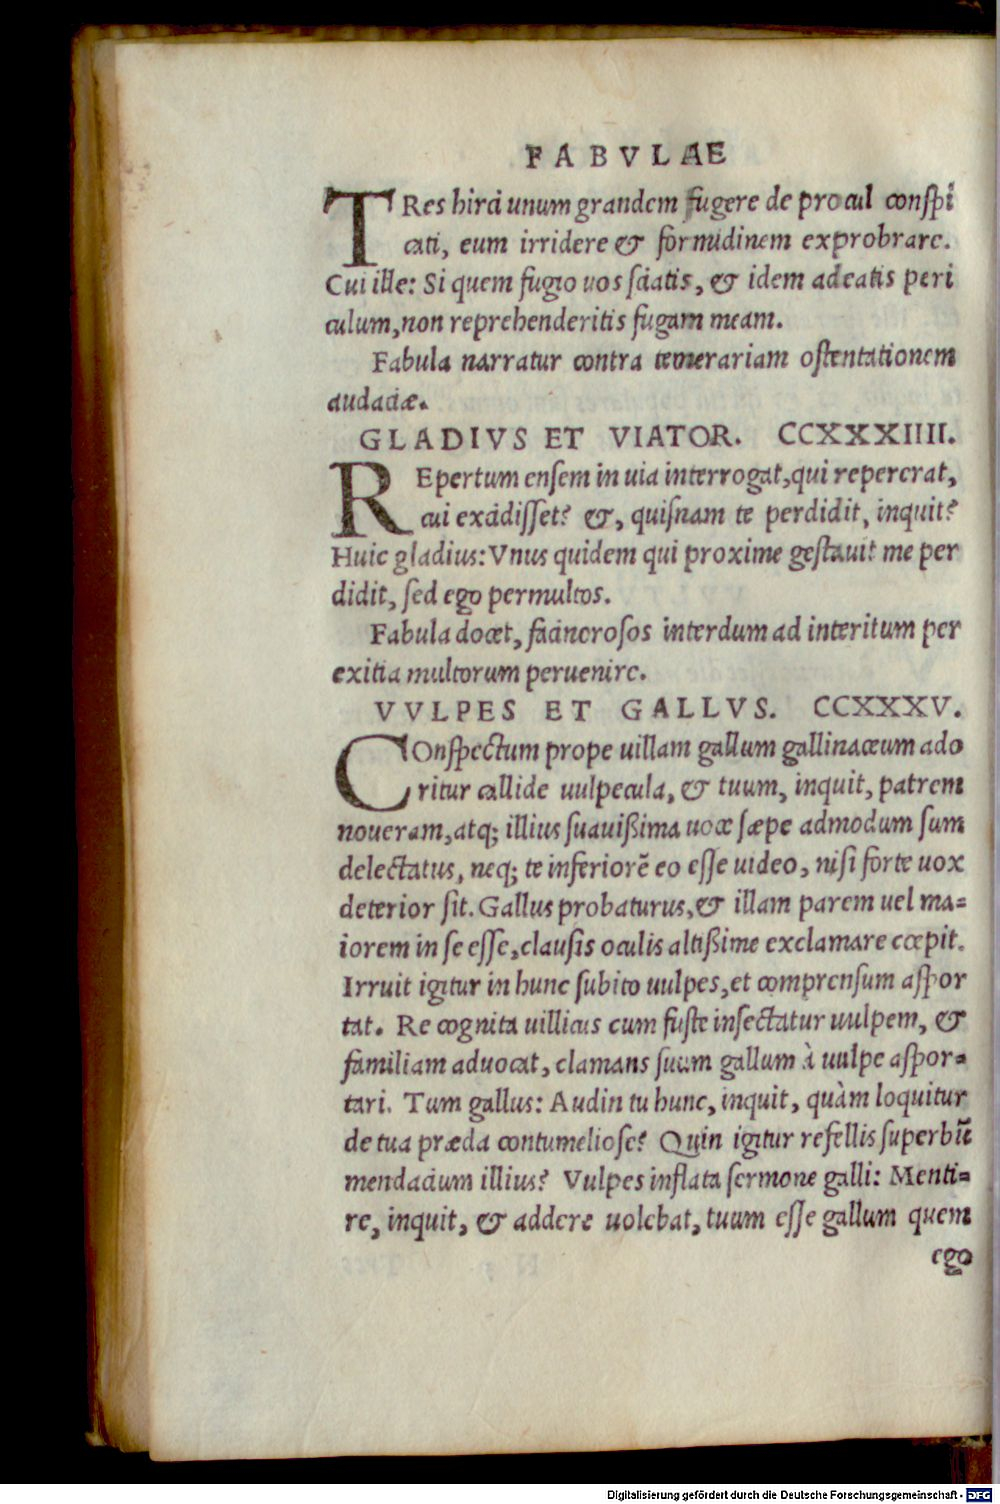 FABVLAE
TRes hirci unum grandem fugere de procul conspi
cati, eum irridere & formidinem exprobrare.
Cui ille: Si quem fugio uos sciatis, & idem adeatis peri
culum, non reprehenderitis fugam meam.
Fabula narratur contra temerariam ostentationem
audaciæ.
GLADIVS ET VIATOR. CCXXXIIII.
REpertum ensem in uia interrogat, qui repererat,
cui excidisset? &, quisnam te perdidit, inquit?
Huic gladius: Vnus quidem qui proxime gestauit me per
didit, sed ego permultos.
Fabula docet, facinorosos interdum ad interitum per
exitia multorum peruenire.
VVLPES ET GALLVS. CCXXXV.
COnspectum prope uillam gallum gallinaceum ado
ritur callide uulpecula, & tuum, inquit, patrem
noueram, atq; illius suauißima uoce sæpe admodum sum
delectatus, neq; te inferiorẽ eo esse uideo, nisi forte uox
deterior sit. Gallus probaturus, & illam parem uel ma=
iorem in se esse, clausis oculis altißime exclamare cœpit.
Irruit igitur in hunc subito uulpes, et comprensum aspor
tat. Re cognita uillicus cum fuste insectatur uulpem, &
familiam aduocat, clamans suum gallum à uulpe aspor=
tari. Tum gallus: Audin tu hunc, inquit, quàm loquitur
de tua præda contumeliose? Quin igitur refellis superbũ
mendacium illius? Vulpes inflata sermone galli: Menti=
re, inquit, & addere uolebat, tuum esse gallum quem
ego
Digitalisierung gefördert durch die Deutsche Forschungsgemeinschaft - DFG